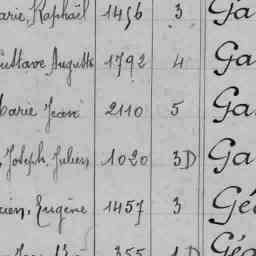 arie, Raphaël 1456 3 Ga
Gustave Auguste 1792 4 Ga
Marie Jean 2110 5 Ga
Joseph Julien 1020 3D Ga
cien, Eugène 1457 3 Gé
355 1D Géo